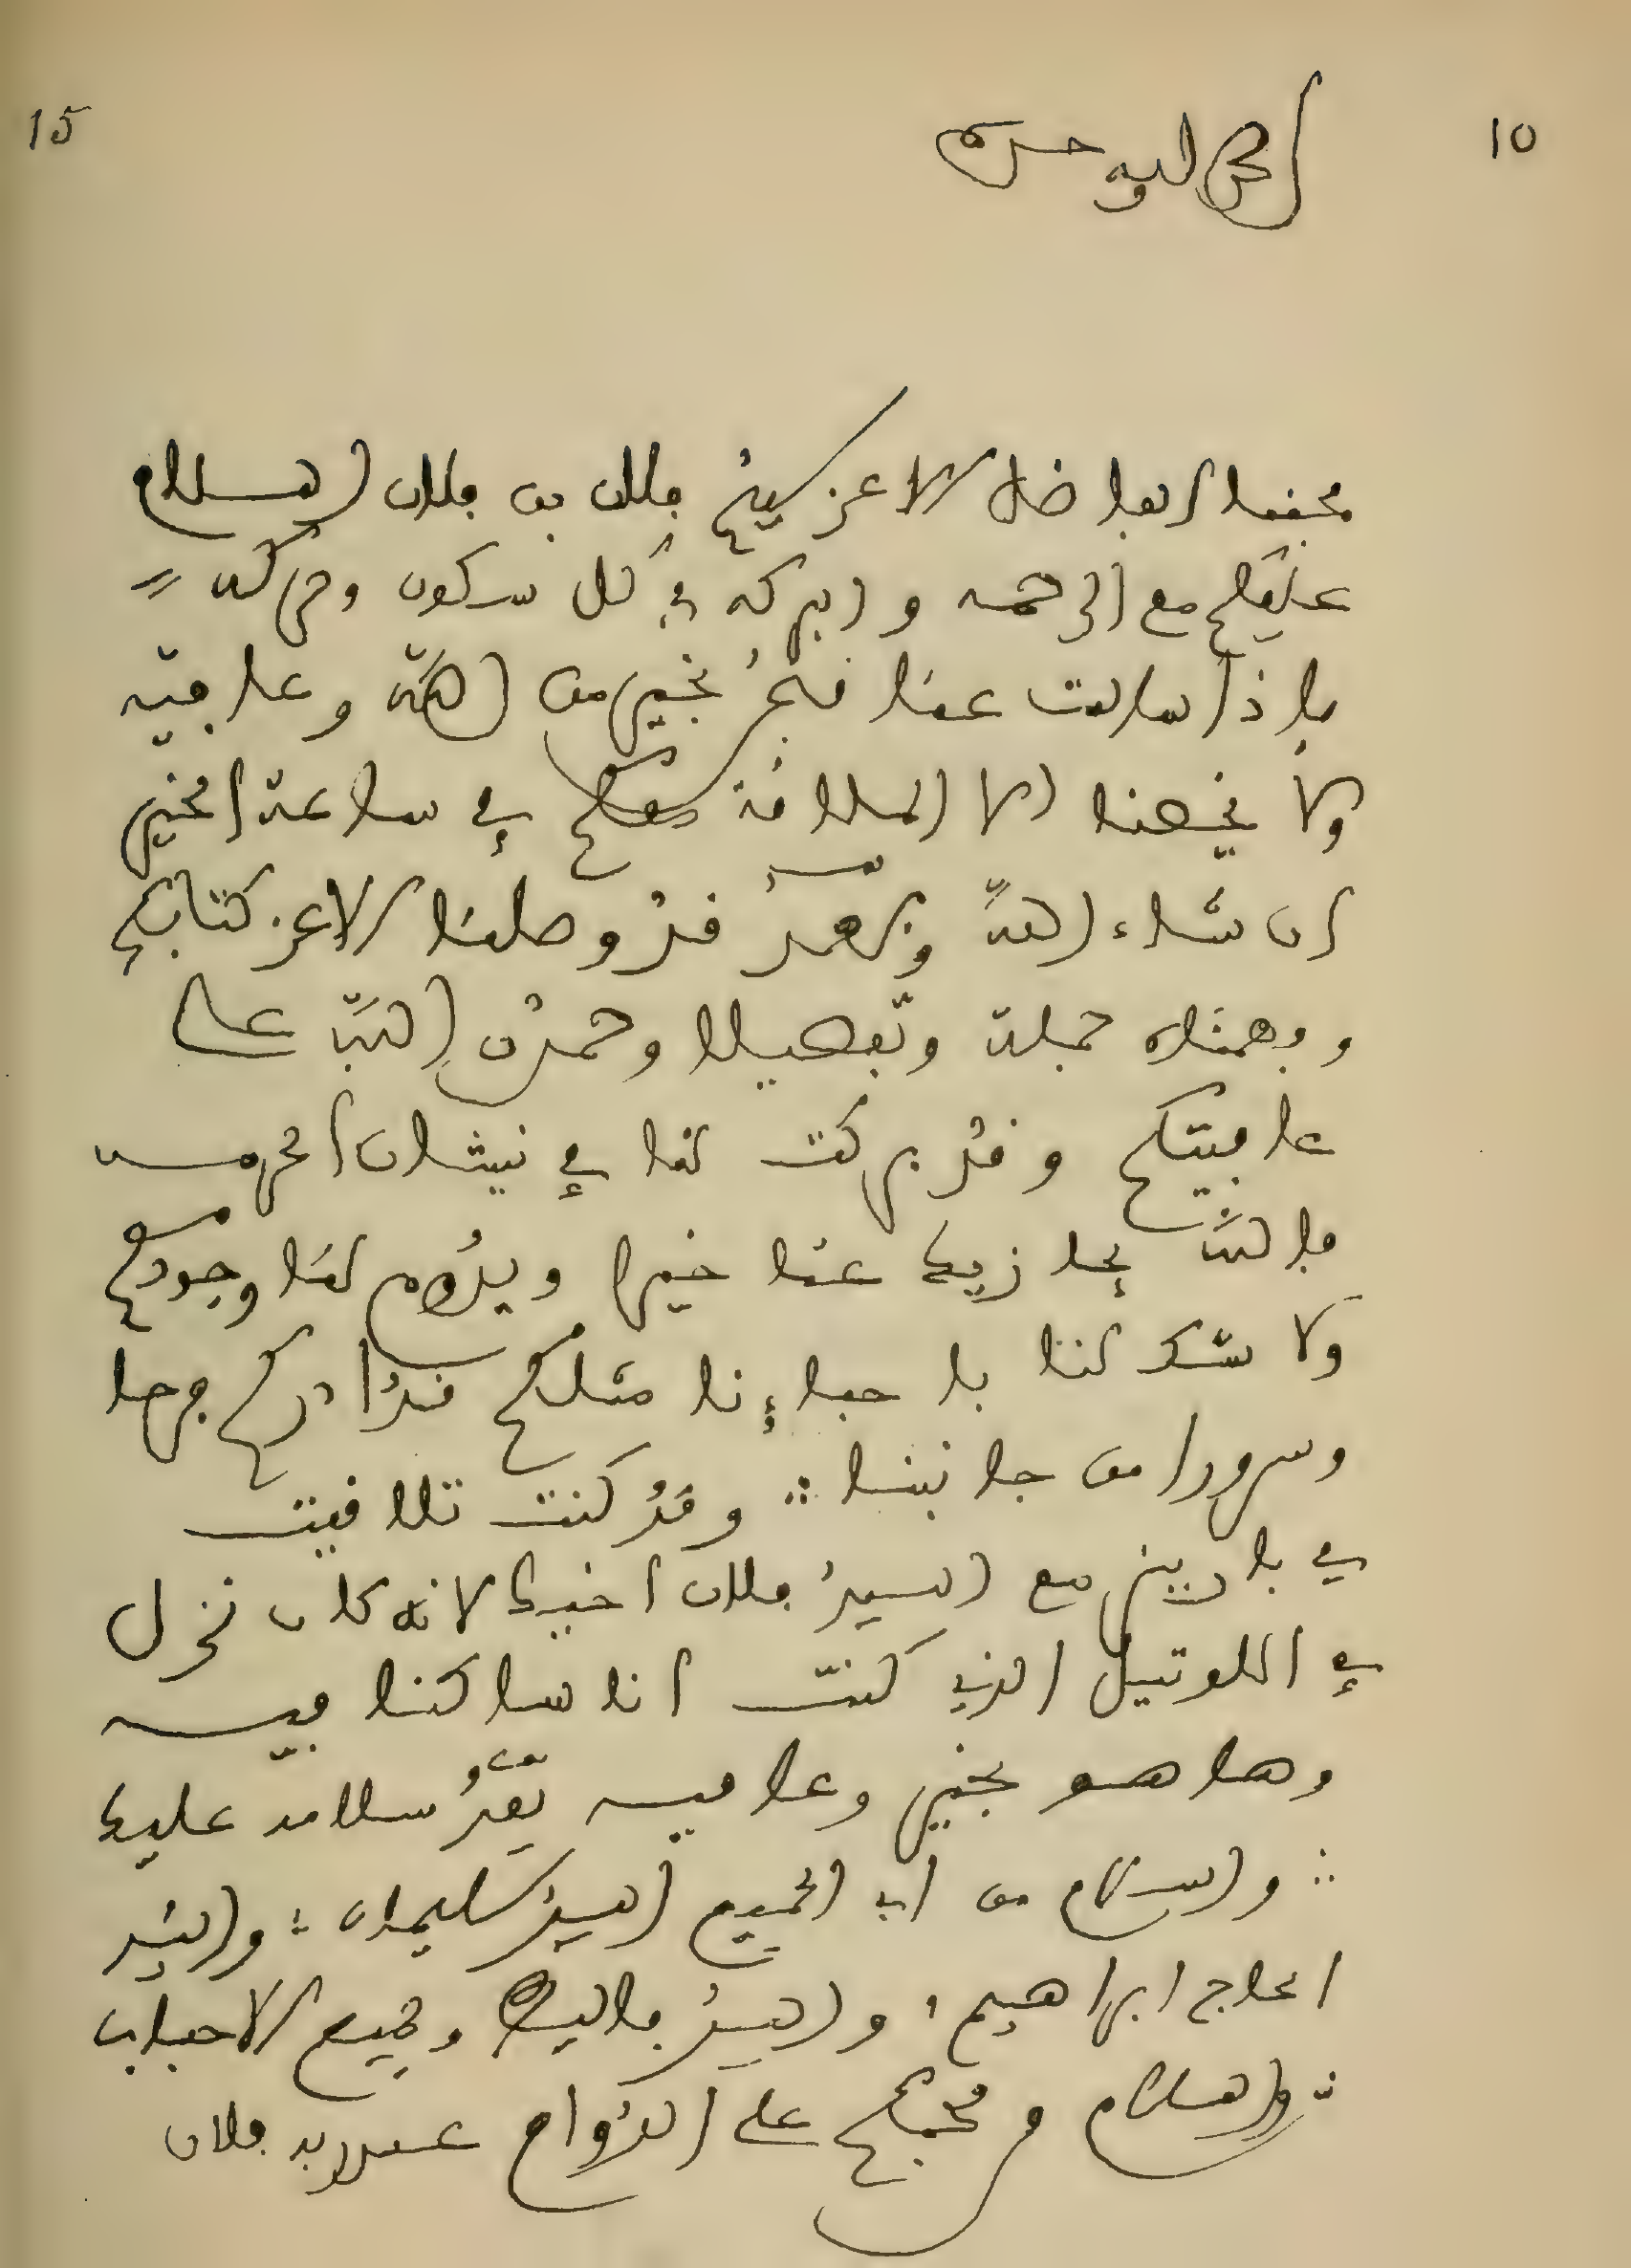 15
10
الحمد لله وحده
محبنا الفاضل الاعز سيد فلان بن فلان السلام
عليكم مع الرحمه والبركه في كل سكون وحركه
فاذا سالت عنا فنحمد بخير من الله وعافيه
ولا يخصنا الا الملاقة معكم في ساعة الخير
ان شاء الله وبعد فقد وصلنا الاعز كتابكم
وفهمناه جملة وتفصيلا وحمدت الله على
عافيتكم وقد بركت لنا في نيشان
فالله يجازيك عنا خيرا ويدوم لنا وجودكم
ولا شك لنا باحباءنا مثلكم قد ادرككم فرحا
وسرورا من جانبنا وقد كنت تلاقيت
في باريز مع السيد فلان اخيك لانه كان نزل
في اللوتيل الذي كنت انا ساكنا فيه
وها هو بخير وعافيه سلامه عليك
والسلام من اب الجميع السيد سليمان والسيد
الحاج ابراهيم والسيد وجميع الاحباب
والسلام ومحبكم على الدوام فلان